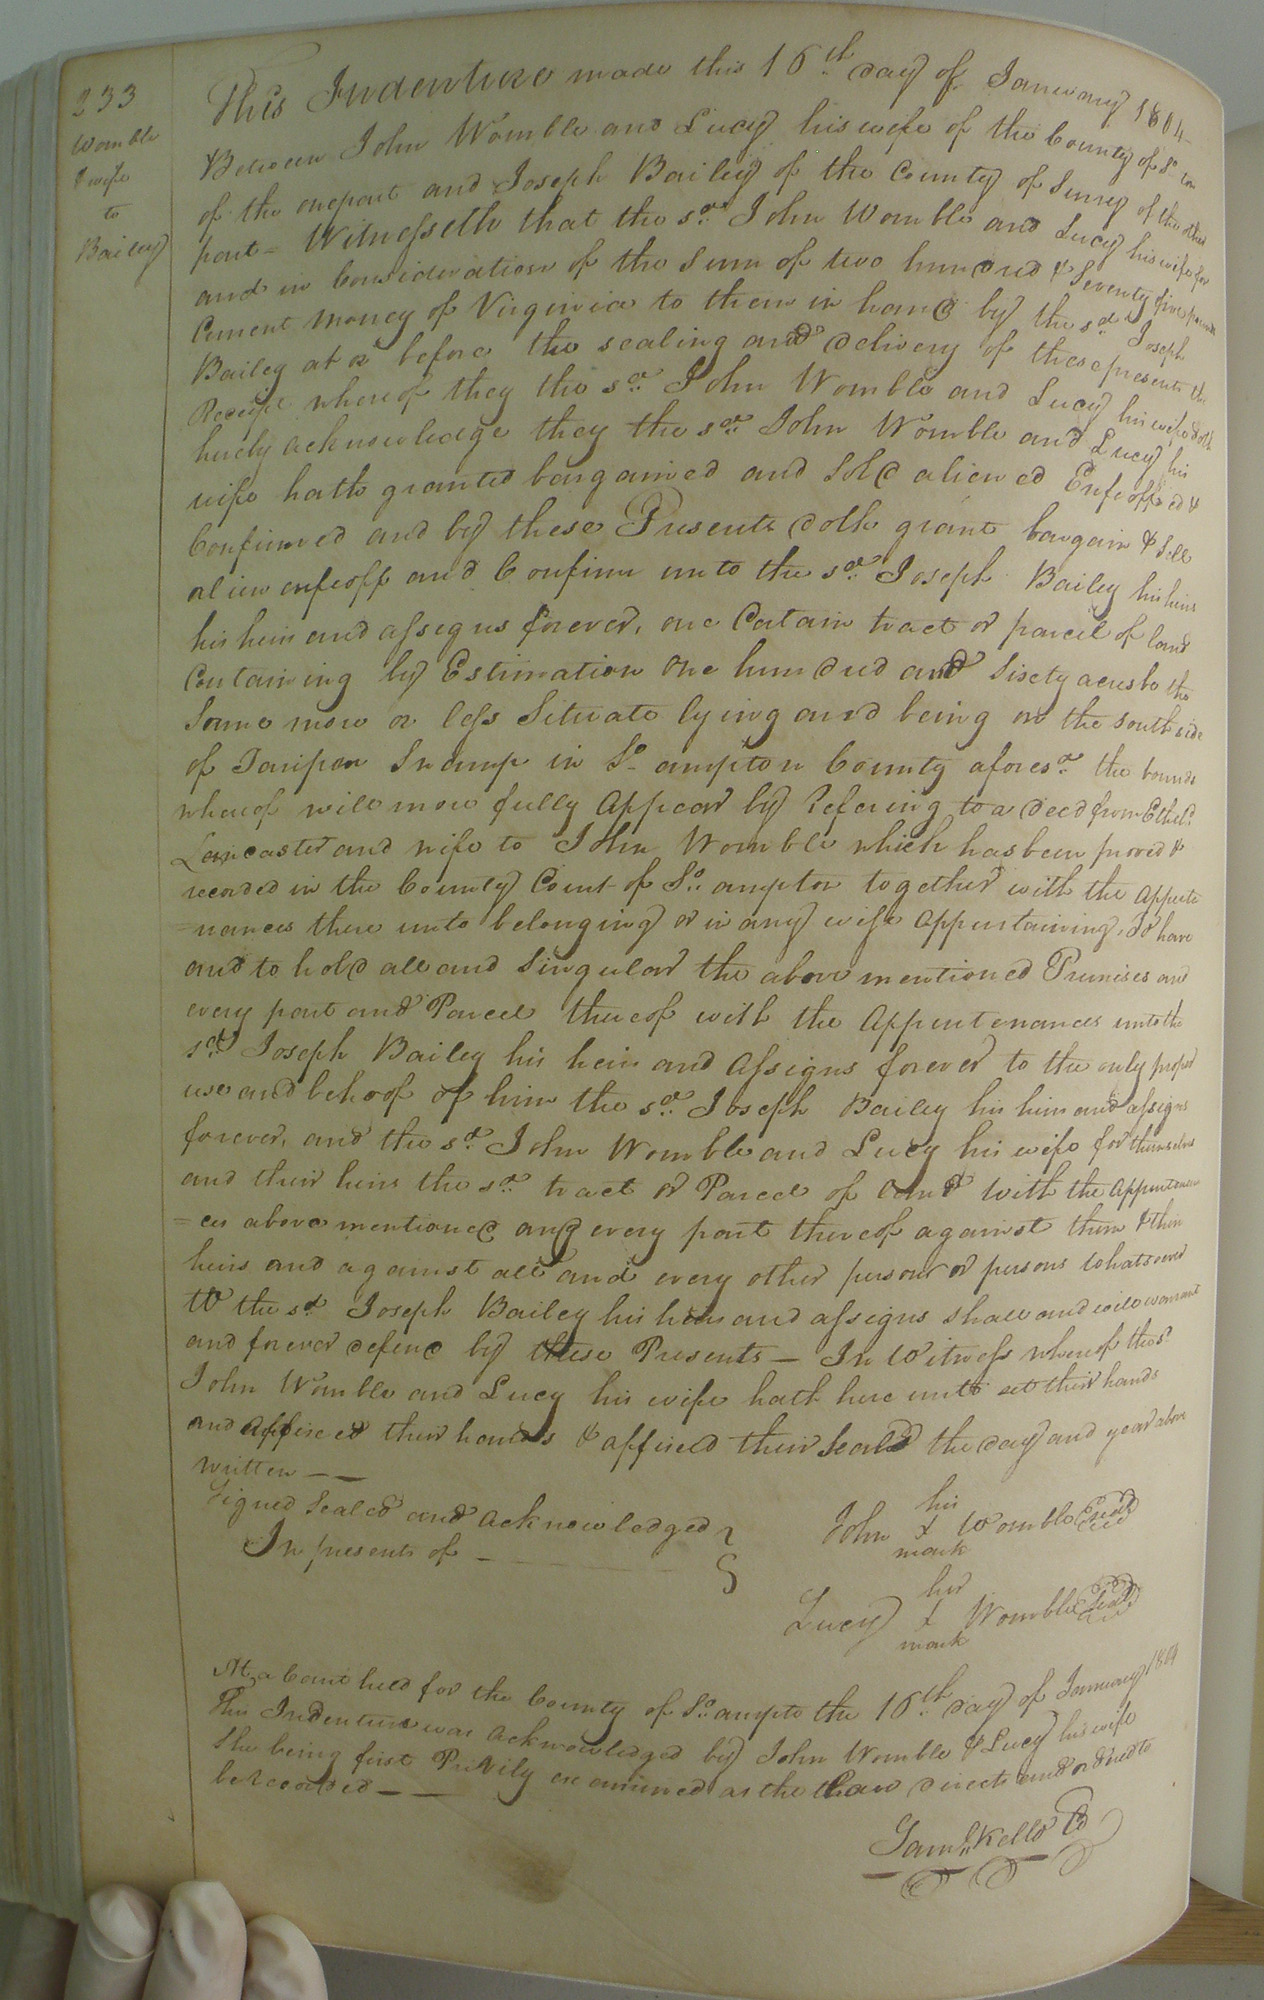 233
Womble
& wife
to
Bailey
This Indenture made this 16th day of January 1804
Between John Womble and Lucy his wife of the County of So ton
of the onepart and Joseph Bailey of the County of Surrey of the other
part – Witnesseth that the sd John Womble and Lucy his wife for
and in Consideration of the Sum of two hundred & Seventy five pounds
Current Money of Virginia to them in hand by the sd Joseph
Bailey at or before the sealing and delivery of these presents the
Receipt whereof they the sd John Womble and Lucy his wife doth
hereby acknowledge they the sd John Womble and Lucy his
wife hath granted bargained and Sold aliened Enfeoffed &
Confirmed and by these Presents doth grant bargain & Sell
alien enfeoff and Confirm unto the sd Joseph Bailey his heirs
his heirs and assigns forever, one Certain tract or parcel of land
Containing by Estimation One hundred and Sixty acres be the
Same more or less Situate lying and being on the South side
of Tarripon Swamp in So ampton County aforesd the bounds
whereof will more fully Appear by Refering to a deed from Etheld
Lancaster and wife to John Womble which has been proved &
recorded in the County Court of So ampton together with the Appurte
=nances there unto belonging or in any wise Appurtaining, To have
and to hold all and Singular the above mentioned Premises and
every part and Parcel thereof with the Appurtenances unto the
sd Joseph Bailey his heirs and Assigns forever to the only proper
use and behoof of him the sd Joseph Bailey his heirs and assigns
forever, and the sd John Womble and Lucy his wife for themselves
and their heirs the sd tract or Parcel of land with the Appurtenan
=ces above mentioned and every part thereof against them & their
heirs and against all and every other person or persons whatsoever
to the sd Joseph Bailey his heirs and assigns shall and will warrant
and forever defend by these Presents – In Witness whereof the sd
John Womble and Lucy his wife hath here unto set their hands
and affixed their hands & affixed their Seals the day and year above
written – –
Signed Sealed and acknowledged
In presents of –
his
John + Womble Seal
mark
her
Lucy + Womble Seal
mark
At a Court held for the County of So ampto the 16th day of January 1804
This Indenture was Acknowledged by John Womble & Lucy his wife
She being first Privily examined as the Law directs and ordered to
be Recorded – –
Saml Kello CC